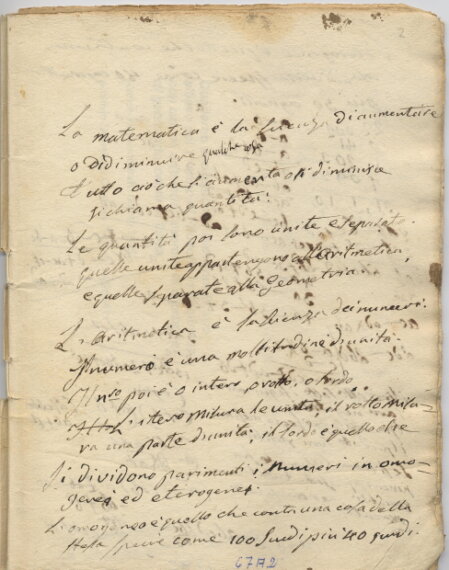 2
La matematica è la scienza di aumentare
o di diminuire qualche cosa
Tutto ciò che si aumenta o si diminuisce
si chiama quantità.
Le quantità poi sono unite e separate.
quelle unite appartengono all'aritmetica,
e quelle separate alla Geometria.
L'aritmetica è la Scienza dei numeri.
Il numero è una moltitudine d'unità.
Il nro poi è o intero, o rotto, o sordo
L'intero misura le unità, il rotto misu-
ra una parte d'unità, il sordo è quello che
Si dividono parimenti i numeri in omo-
genei ed eterogenei.
L'omogeneo è quello che conta una cosa della
stessa specie come 100 Scudi più 40 scudi.
67A2